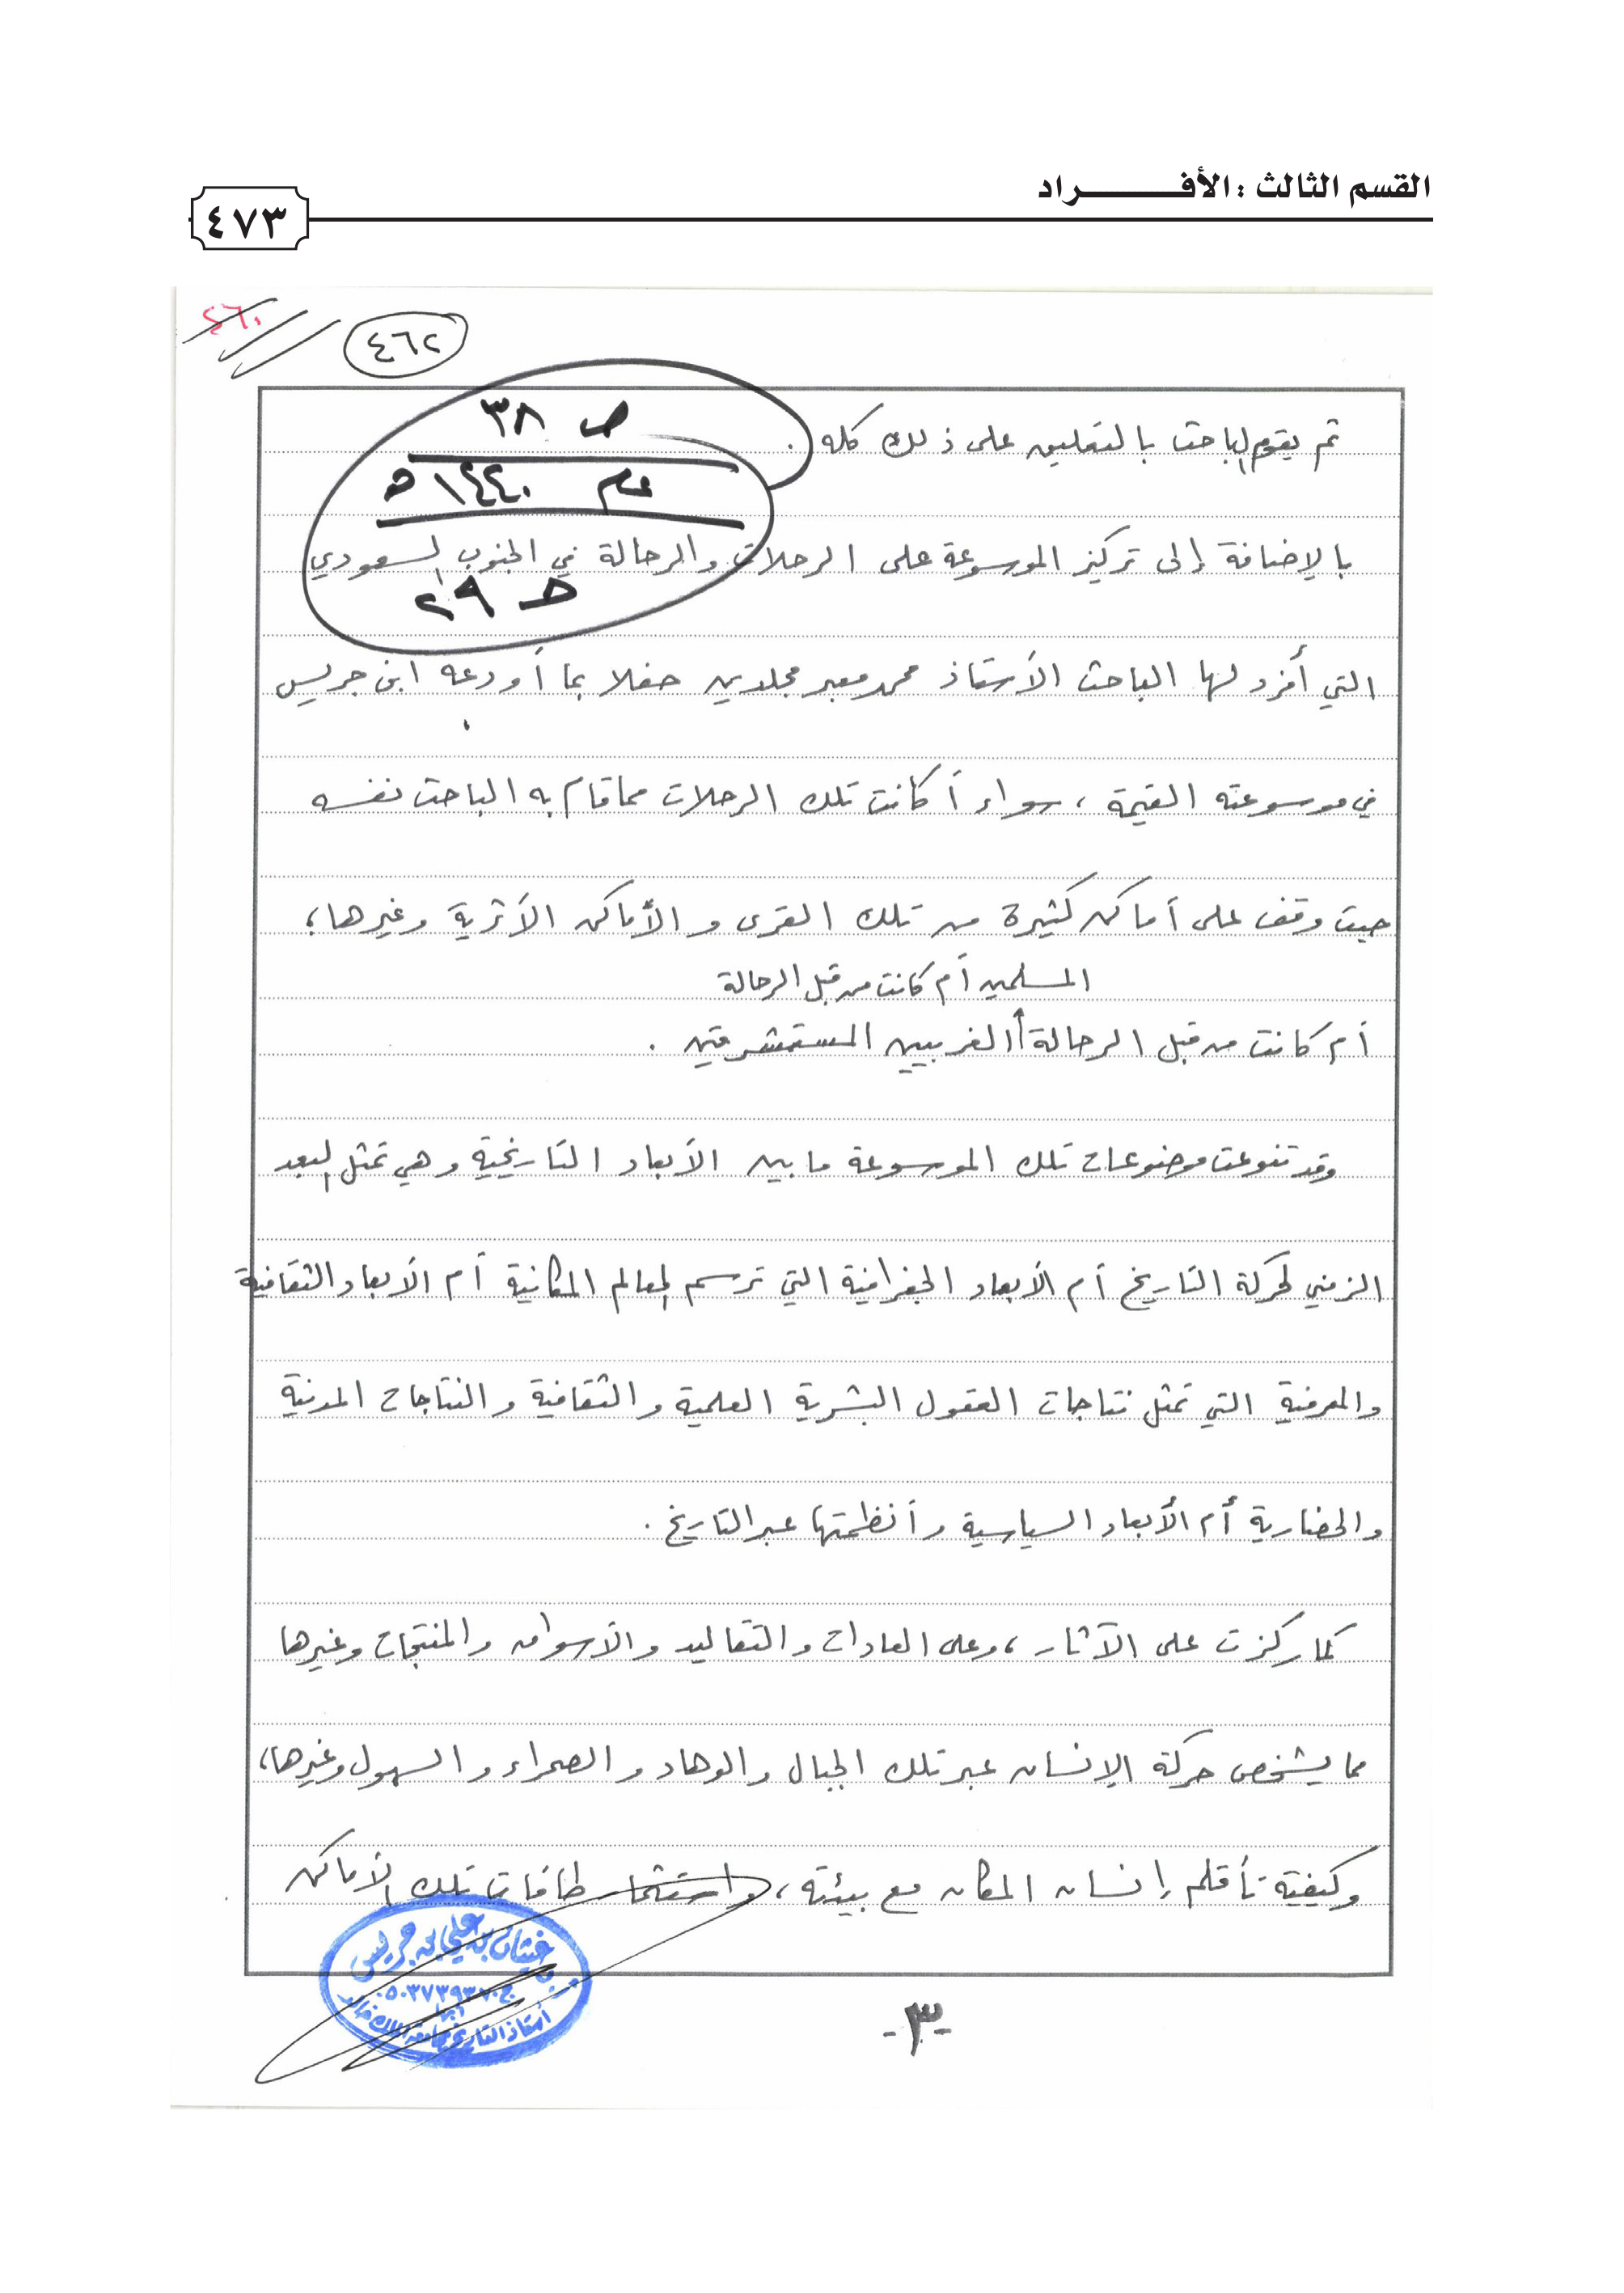 القسم الثالث : الأفـــــــــراد
٤٧٣
٤٦٠
٤٦٢
ص ٣٨
عام ١٤٤٠ه
ط ٢٩
ثم يقوم الباحث بالتعليق على ذلك كله .
بالإضافة إلى تركيز الموسوعة على الرحلات والرحالة في الجنوب السعودي
التي أفرد لها الباحث الأستاذ محمد معبر مجلدين حفلا بما أودعه ابن جريس
في موسوعته القيمة ، سواء أكانت تلك الرحلات مما قام به الباحث نفسه
حيث وقف على أماكن كثيرة من تلك القرى والأماكن الأثرية وغيرها ،
المسلمين أم كانت من قبل الرحالة
أم كانت من قبل الرحالة الغربيين المستشرقين .
وقد تنوعت موضوعات تلك الموسوعة ما بين الأبعاد التاريخية وهي تمثل البعد
الزمني لحركة التاريخ أم الأبعاد الجغرافية التي ترسم المعالم المكانية أم الأبعاد الثقافية
والمعرفية التي تمثل نتاجات العقول البشرية العلمية والثقافية والنتاجات المدنية
والحضارية أم الأبعاد السياسية وأنظمتها عبر التاريخ .
كما ركزت على الآثار ، وعلى العادات والتقاليد والأسواق والمنتجات وغيرها
مما يشخص حركة الإنسان عبر تلك الجبال والوهاد والصحراء والسهول وغيرها ،
وكيفية تأقلم إنسان المكان مع بيئته ، واستثمار طاقات تلك الأماكن
غيثان بن علي بن جريس
ج ٠٥٠٣٧٣٩٣٧٠
أبها
أستاذ التاريخ بجامعة الملك خالد
-٣-